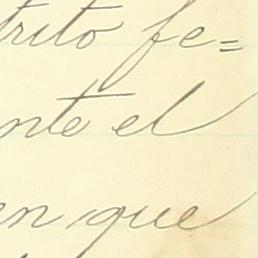 trito fe=
nte el
en que